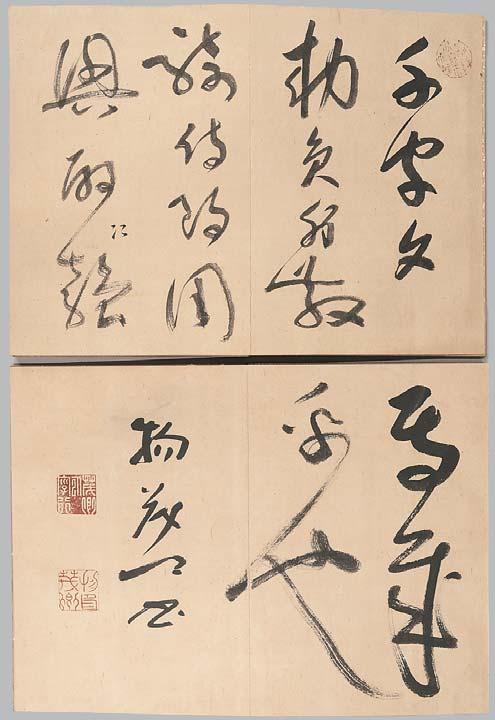 千字文
勅員外散
騎侍郎周
興嗣次韻
焉哉
乎也
物茂卿書